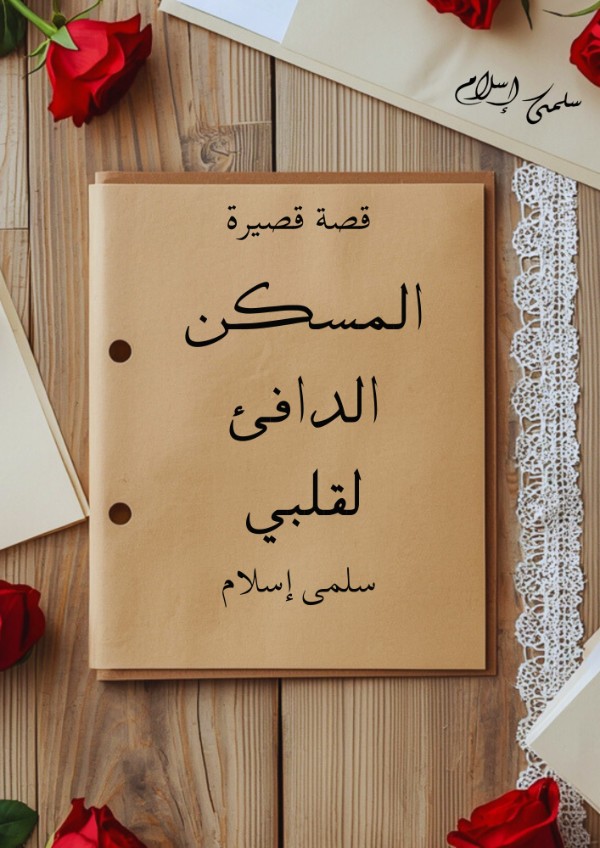 سلمى إسلام
قصة قصيرة
المسكن
الدافئ
لقلبي
سلمى إسلام